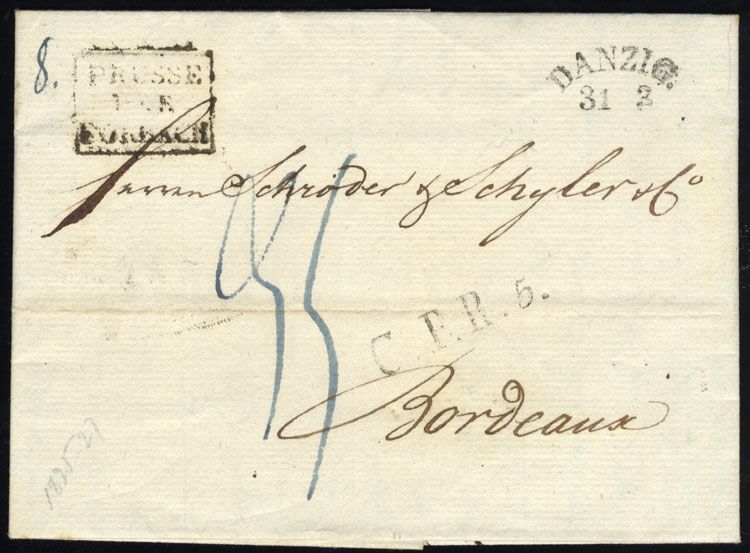 8.
PRUSSE
PAR
FORBACH
DANZIG.
31 3
Herren Schröder & Schyler & Co
C.F.R.5.
Bordeaux